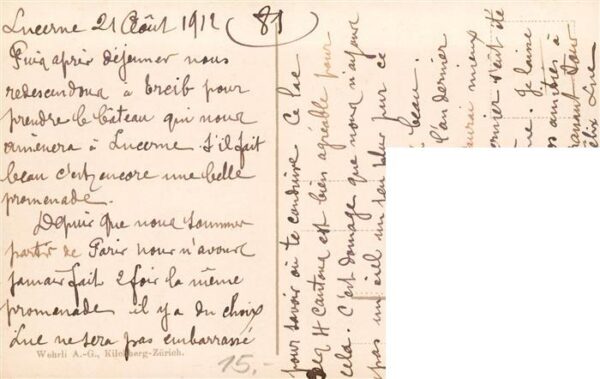 Lucerne 21 Août 1912 (81)
Puis après déjeuner nous
redescendons à Treib pour
prendre le bâteau qui nous
amènera à Lucerne s'il fait
beau c'est encore une belle
promenade.
Depuis que nous sommes
partis de Paris nous n'avons
jamais fait 2 fois la même
promenade il y a du choix
Luc ne sera pas embarrassé
pour savoir où te conduire Ce lac
des 4 Cantons est bien agréable pour
cela. C'est domage que nous n'ayons
pas un ciel un peu plus pur ce
beau.
l'an dernier
mieux
dernier eut été
ne. Je laisse
amitiés à
Luc
Wehrli A.-G., Kilchberg-Zürich.
15.-